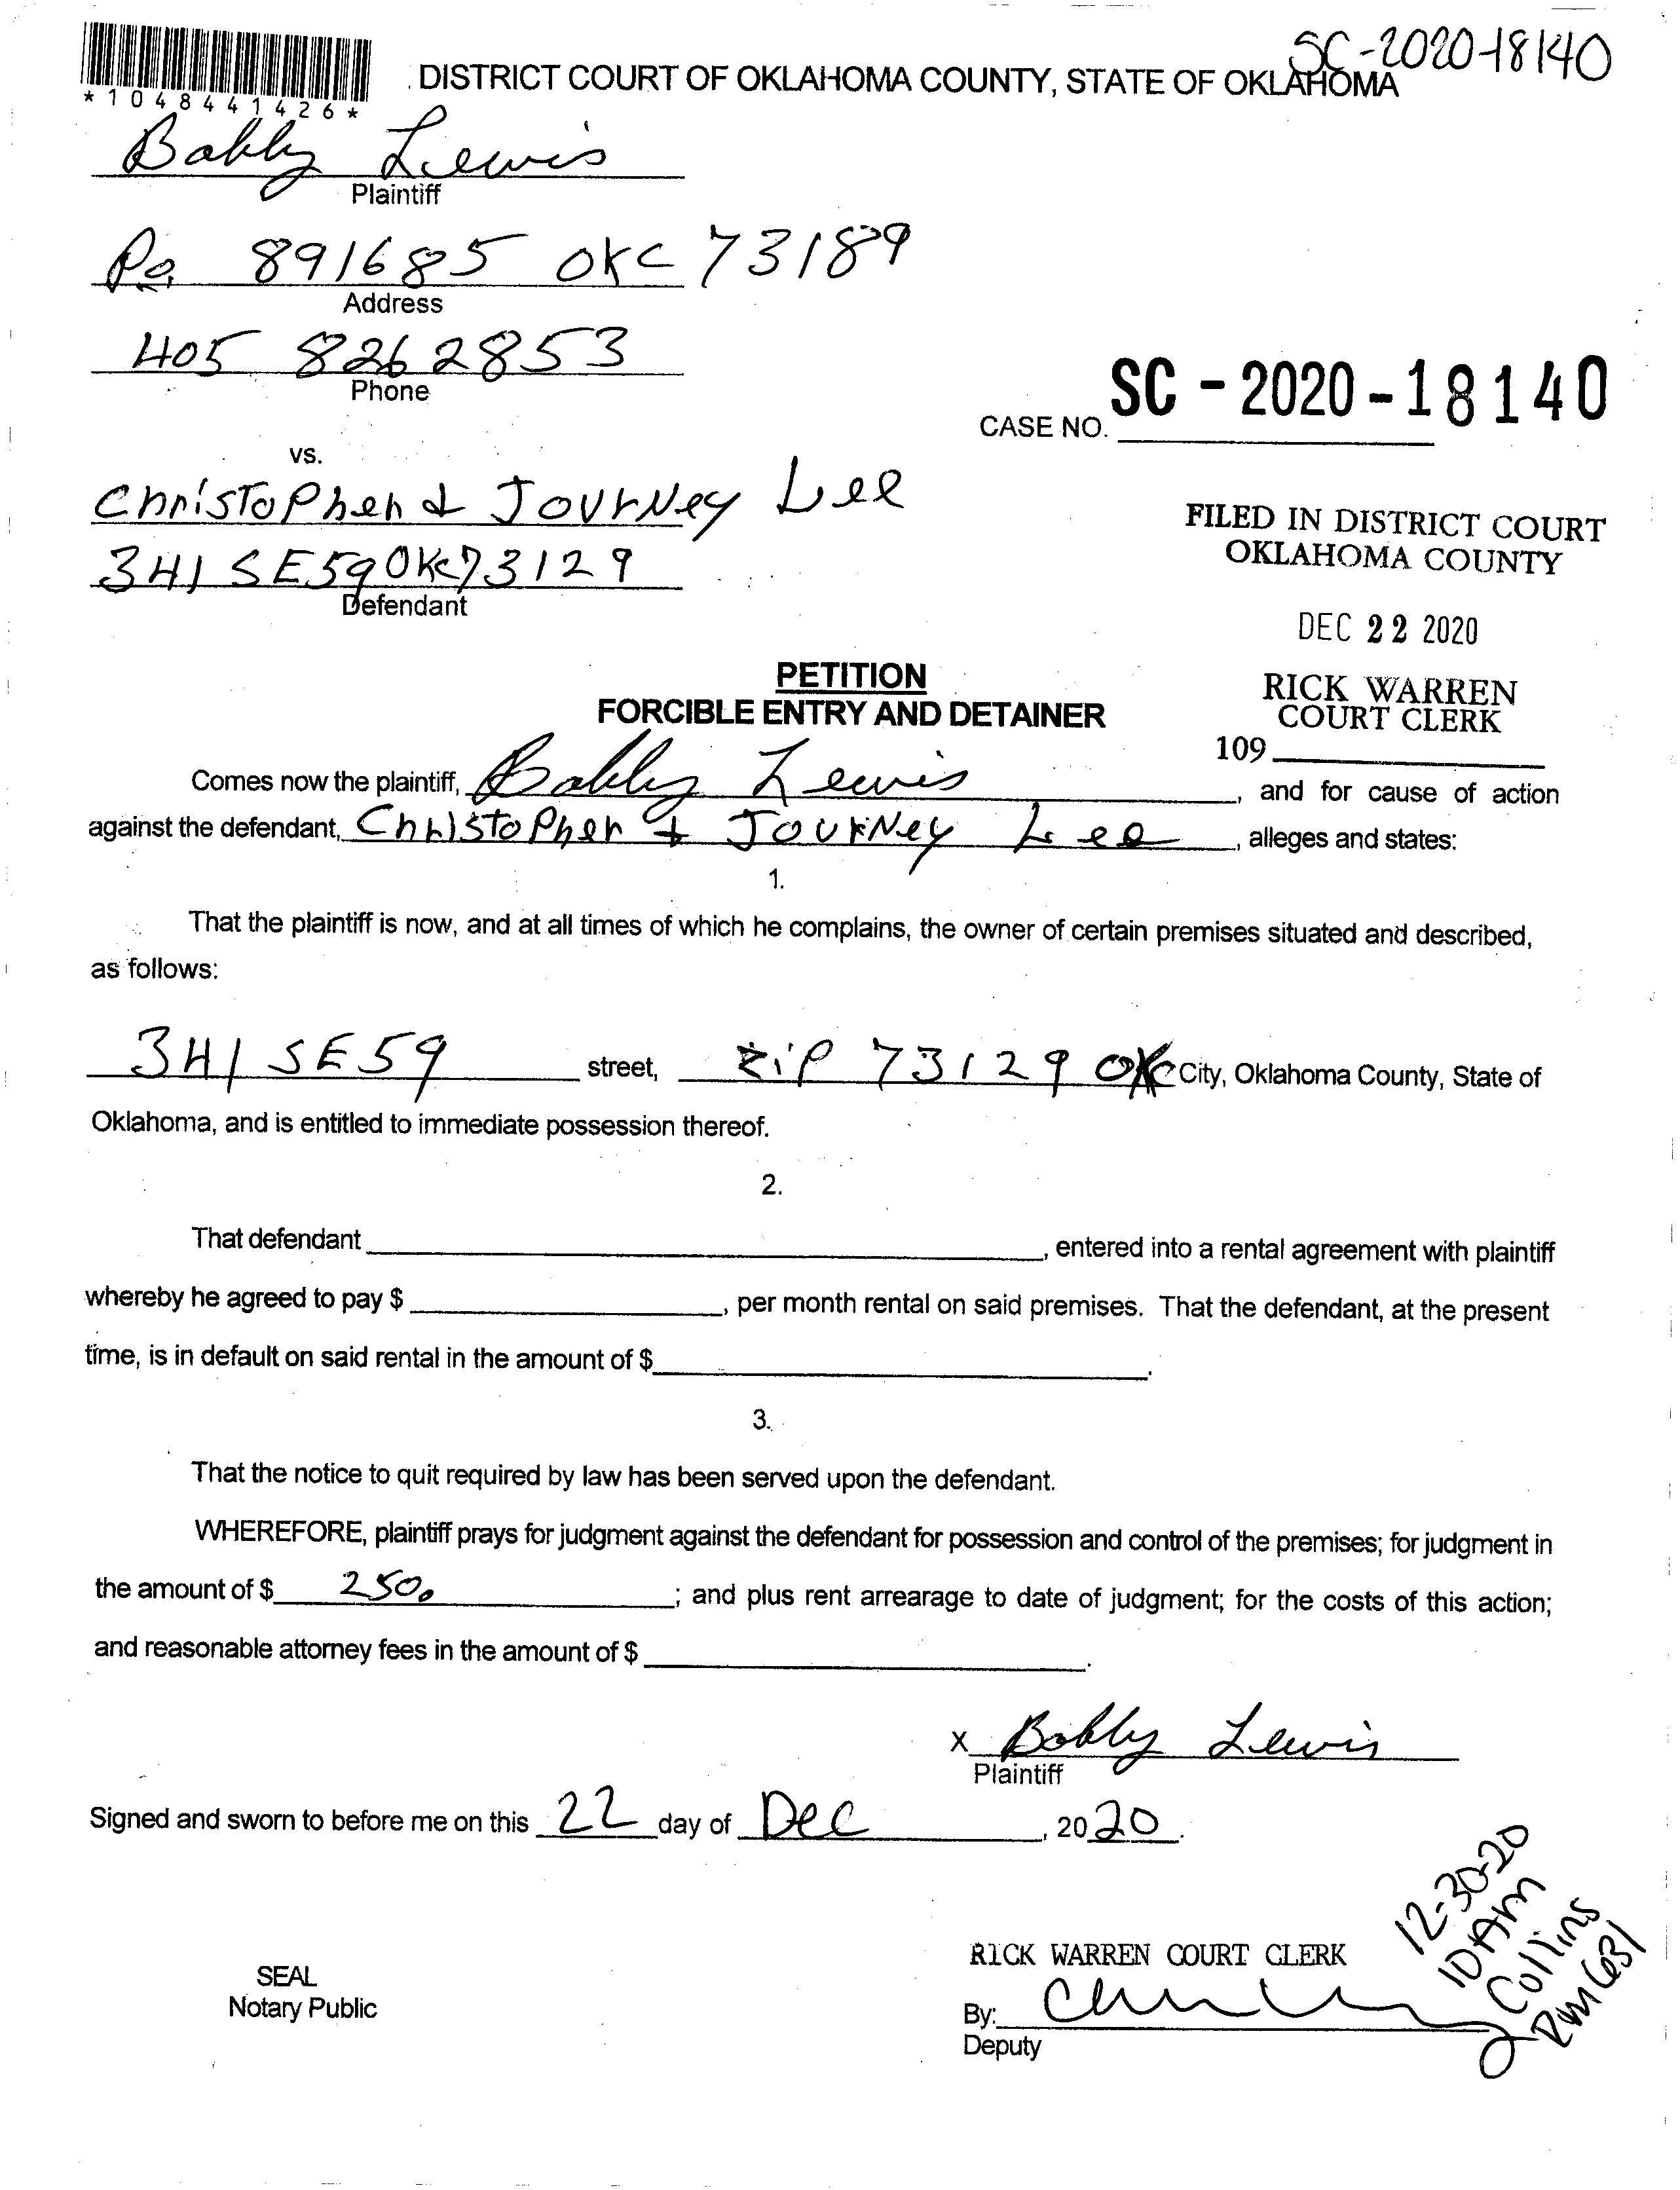 SC-2020-18140
DISTRICT COURT OF OKLAHOMA COUNTY, STATE OF OKLAHOMA
*1048441426*
Bobby Lewis
Plaintiff
Po 891685 OKC 73189
Address
405 826 2853
Phone
CASE NO. SC-2020-18140
vs.
Christopher & Journey Lee
341 SE59 OKC 73129
Defendant
FILED IN DISTRICT COURT
OKLAHOMA COUNTY
DEC 22 2020
RICK WARREN
COURT CLERK
109
PETITION
FORCIBLE ENTRY AND DETAINER
Comes now the plaintiff, Bobby Lewis, and for cause of action
against the defendant, Christopher + Journey Lee, alleges and states:
1.
That the plaintiff is now, and at all times of which he complains, the owner of certain premises situated and described,
as follows:
341 SE59 street, Zip 73129 OKC City, Oklahoma County, State of
Oklahoma, and is entitled to immediate possession thereof.
2.
That defendant, entered into a rental agreement with plaintiff
whereby he agreed to pay $, per month rental on said premises. That the defendant, at the present
time, is in default on said rental in the amount of $.
3.
That the notice to quit required by law has been served upon the defendant.
WHEREFORE, plaintiff prays for judgment against the defendant for possession and control of the premises; for judgment in
the amount of $ ; and plus rent arrearage to date of judgment; for the costs of this action;
and reasonable attorney fees in the amount of $.
X Bobby Lewis
Plaintiff
Signed and sworn to before me on this 22 day of Dec, 2020.
12-30-20
10 Am
Collins
Rm 631
RICK WARREN COURT CLERK
SEAL
Notary Public
By:
Deputy